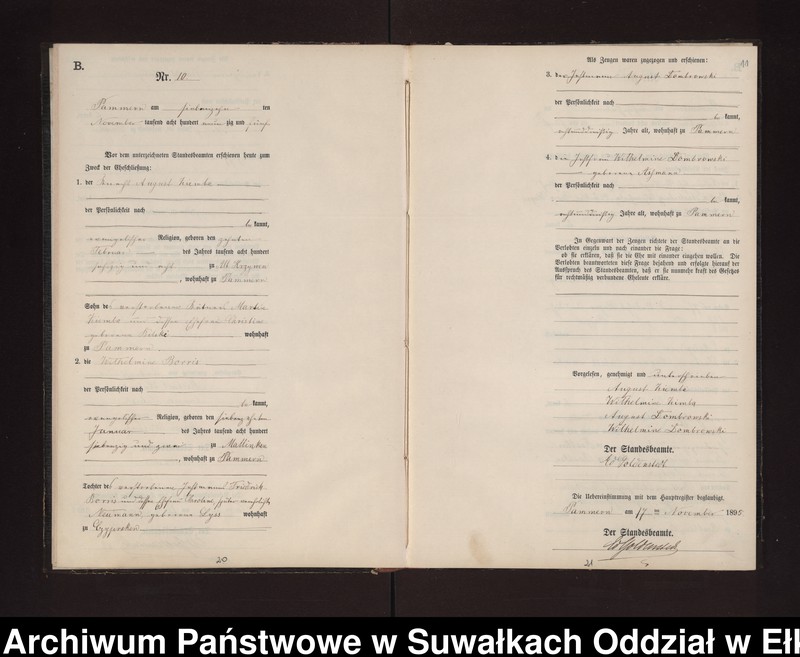 B.
Nr. 10
Pammern am siebenzehn ten
November tausend acht hundert neun zig und fünf
Vor dem unterzeichneten Standesbeamten erschienen heute zum
Zweck der Eheschließung:
1. der Knecht August Kumba
der Persönlichkeit nach
be kannt,
evangelischer Religion, geboren den zehnten
Februar des Jahres tausend acht hundert
sechszig und acht zu Alt Krzywen
, wohnhaft zu Pammern
Sohn des verstorbenen Martin
Kumba und dessen Ehefrau Caroline
geborene wohnhaft
zu Pammern
2. die Wilhelmine Borris
der Persönlichkeit nach
be kannt,
evangelischer Religion, geboren den siebenzehnten
Januar des Jahres tausend acht hundert
siebenzig und zwei zu Mallinken
, wohnhaft zu Pammern
Tochter des verstorbenen Friedrich
Borris und dessen Ehefrau Caroline, später verehelichte
Neumann, geborene wohnhaft
zu Czyprken
20
Als Zeugen waren zugezogen und erschienen:
11
3. der August Dombrowski
der Persönlichkeit nach
be kannt,
Jahre alt, wohnhaft zu Pammern
4. die Wilhelmine Dombrowski
geborene
der Persönlichkeit nach
be kannt,
Jahre alt, wohnhaft zu Pammern
In Gegenwart der Zeugen richtete der Standesbeamte an die
Verlobten einzeln und nach einander die Frage:
ob sie erklären, daß sie die Ehe mit einander eingehen wollen. Die
Verlobten beantworteten diese Frage bejahend und erfolgte hierauf der
Ausspruch des Standesbeamten, daß er sie nunmehr kraft des Gesetzes
für rechtmäßig verbundene Eheleute erkläre.
Vorgelesen, genehmigt und unterschrieben
August Kumba
Wilhelmine Kumba
August Dombrowski
Wilhelmine Dombrowski
Der Standesbeamte.
Die Uebereinstimmung mit dem Hauptregister beglaubigt.
Pammern am 17 ten November 1895
Der Standesbeamte.
21
Archiwum Państwowe w Suwałkach Oddział w Ełk